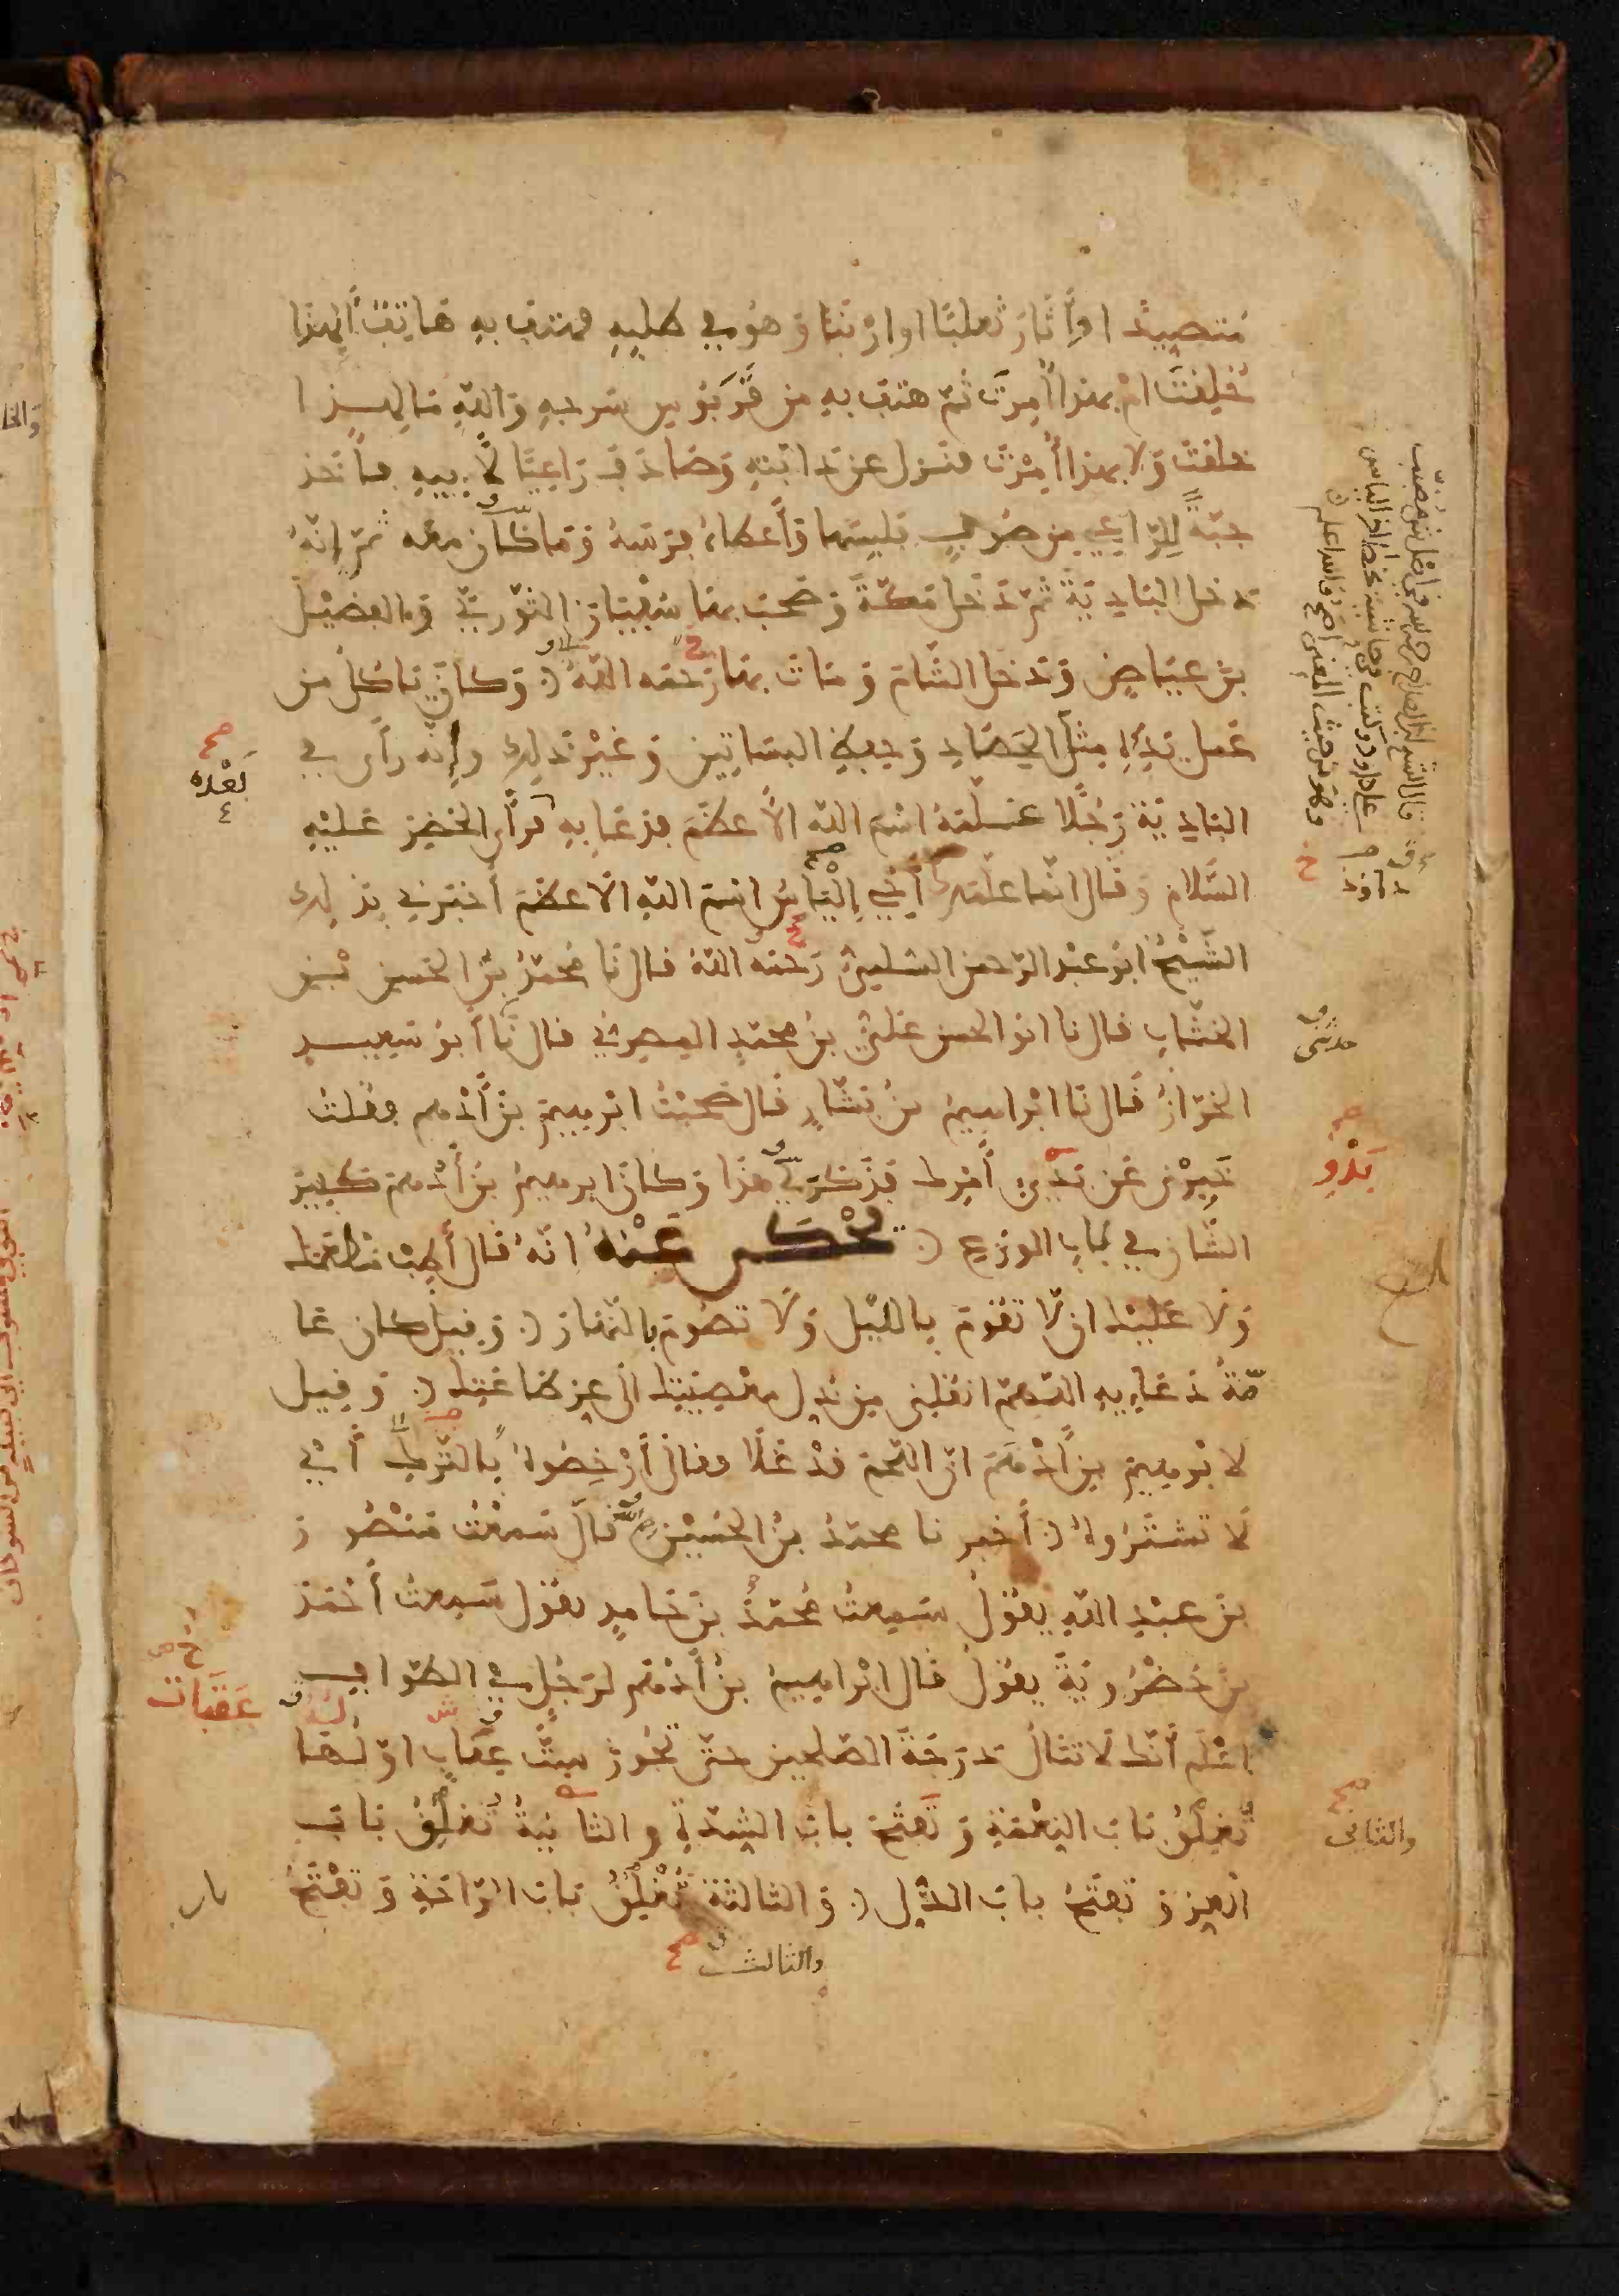 متصيدا وأثار ثعلبا او ارنبا وهو في طلبه فهتف به هاتف ألهذا
خلقت ام بهذا أمرت ثم هتف به من قربوس سرجه والله ما لهذا
خلقت ولا بهذا أمرت فنزل عن دابته وصادف راعيا لأبيه فأخذ
جبة للراعي من صوف فلبسها وأعطاه فرسه وما كان معه ثم إنه
دخل البادية ثم دخل مكة وصحب بها سفيان الثوري والفضيل
بن عياض ودخل الشام ومات بها رحمه الله وكان ياكل من
عمل يده مثل الحصاد وحفظ البساتين وغير ذلك وإنه رأى في
البادية رجلا علمه اسم الله الأعظم فدعا به فرأى الخضر عليه
السلام وقال انما علمك أخي إلياس اسم الله الاعظم أخبرني بذلك
الشيخ ابو عبد الرحمن السلمي رحمه الله قال نا محمد بن الحسين بن
الخشاب قال نا ابو الحسن علي بن محمد المصري قال نا أبو سعيد
الخراز قال نا ابراهيم بن بشار قال صحبت ابرهيم بن أدهم فقلت
خبرني عن بدي أمرك فذكر لي هذا وكان ابرهيم بن أدهم كبير
الشان في باب الورع يحكى عنه انه قال أطب مطعمك
ولا عليك ان لا تقوم بالليل ولا تصوم بالنهار وقيل كان عا
مة دعايه اللهم انقلني من ذل معصيتك الى عز طاعتك وقيل
لابرهيم بن أدهم ان اللحم قد غلا فقال أرخصوه بالترك أي
لا تشتروه أخبرنا محمد بن الحسين رحمه الله قال سمعت منصور
بن عبد الله يقول سمعت محمد بن حامد يقول سمعت أحمد
بن خضرويه يقول قال ابراهيم بن أدهم لرجل في الطواف
اعلم أنك لا تنال درجة الصالحين حتى تجوز ست عقاب اولها
تغلق باب النعمة وتفتح باب الشدة والثانية تغلق باب
العز وتفتح باب الذل والثالثة تغلق باب الراحة وتفتح
والثالث
بعده
داود
حدثني
بدو
عقبات
والثاني